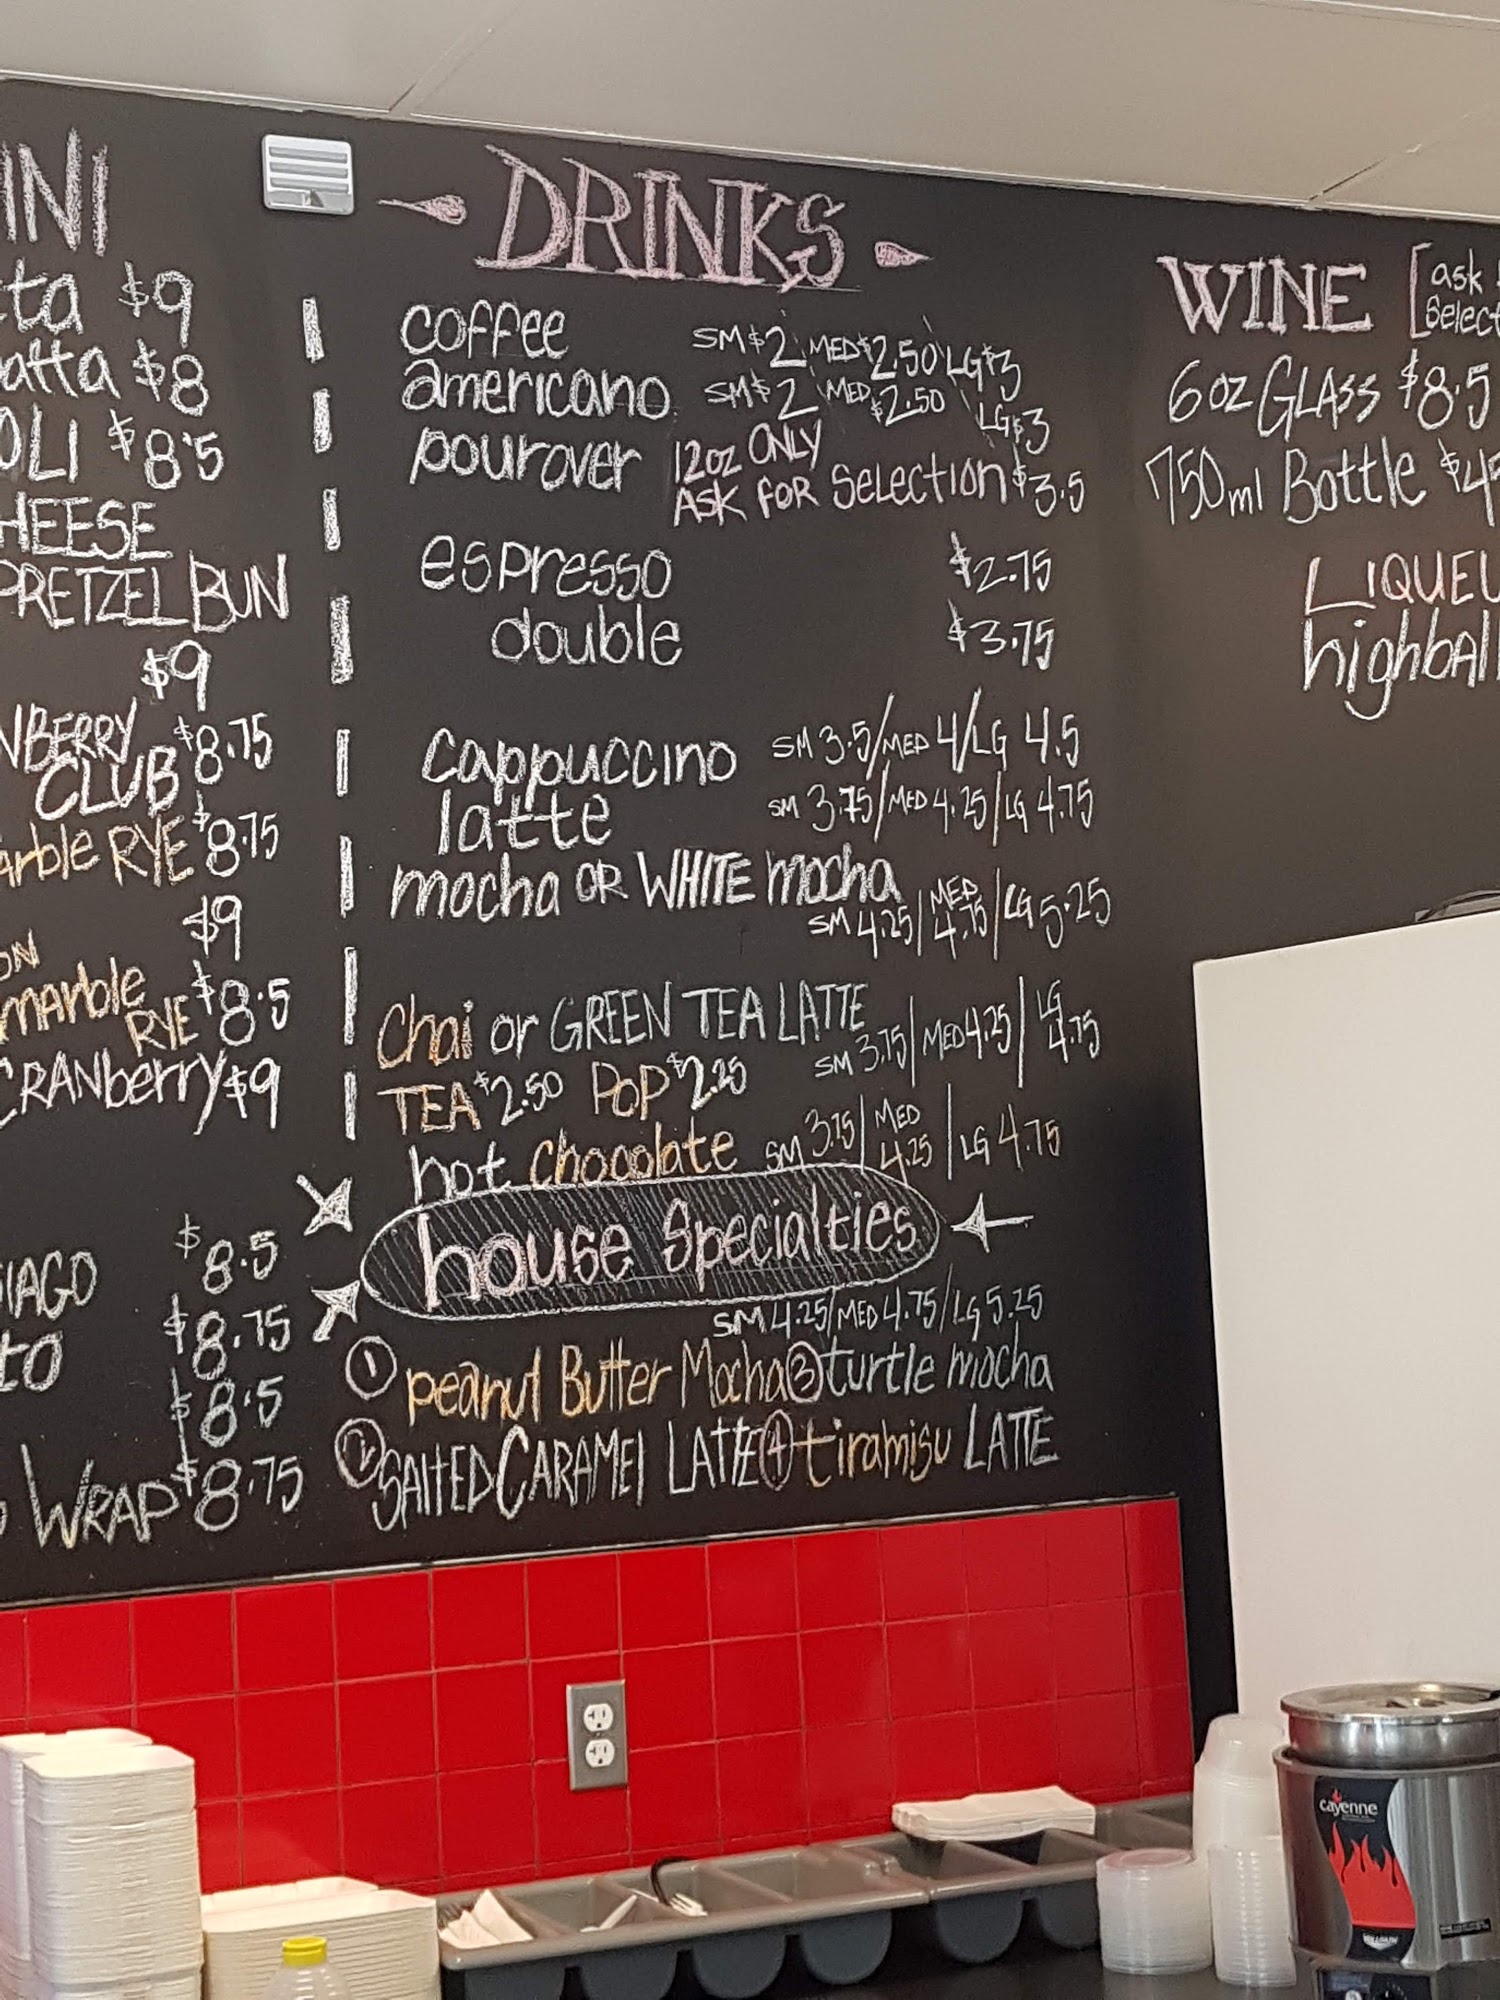 $9
$8
$8.5
PRETZEL BUN
$9
CLUB $8.75
RYE $8.75
$9
marble
RYE $8.5
CRANberry $9
$8.5
$8.75
$8.5
WRAP $8.75
DRINKS
coffee SM $2 MED $2.50 LG $3
americano SM $2 MED $2.50 LG $3
pourover 12oz ONLY
ASK FOR Selection $3.5
espresso $2.75
double $3.75
cappuccino SM 3.5/MED 4/LG 4.5
latte SM 3.75/MED 4.25/LG 4.75
mocha OR WHITE mocha
SM 4.25/MED 4.75/LG 5.25
Chai or GREEN TEA LATTE
SM 3.75/MED 4.25/LG 4.75
TEA $2.50 POP $2.25
hot chocolate SM 3.75/MED 4.25/LG 4.75
house Specialties
SM 4.25/MED 4.75/LG 5.25
1 peanut Butter Mocha 3 turtle mocha
2 SAlTED CARAMEl LATTE 4 tiramisu LATTE
WINE [ask
6oz GLASS $8.5
750ml Bottle
cayenne